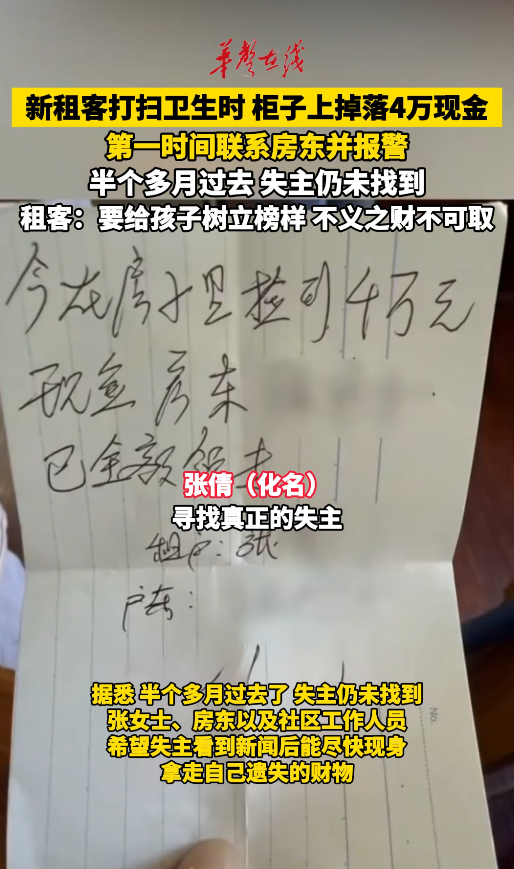 华声在线
新租客打扫卫生时 柜子上掉落4万现金
第一时间联系房东并报警
半个多月过去 失主仍未找到
租客：要给孩子树立榜样 不义之财不可取
今在房子里捡到4万元
现金 房东
已全额领去
张倩（化名）
寻找真正的失主
租户：张
房东：
据悉 半个多月过去了 失主仍未找到
张女士、房东以及社区工作人员
希望失主看到新闻后能尽快现身
拿走自己遗失的财物
No.